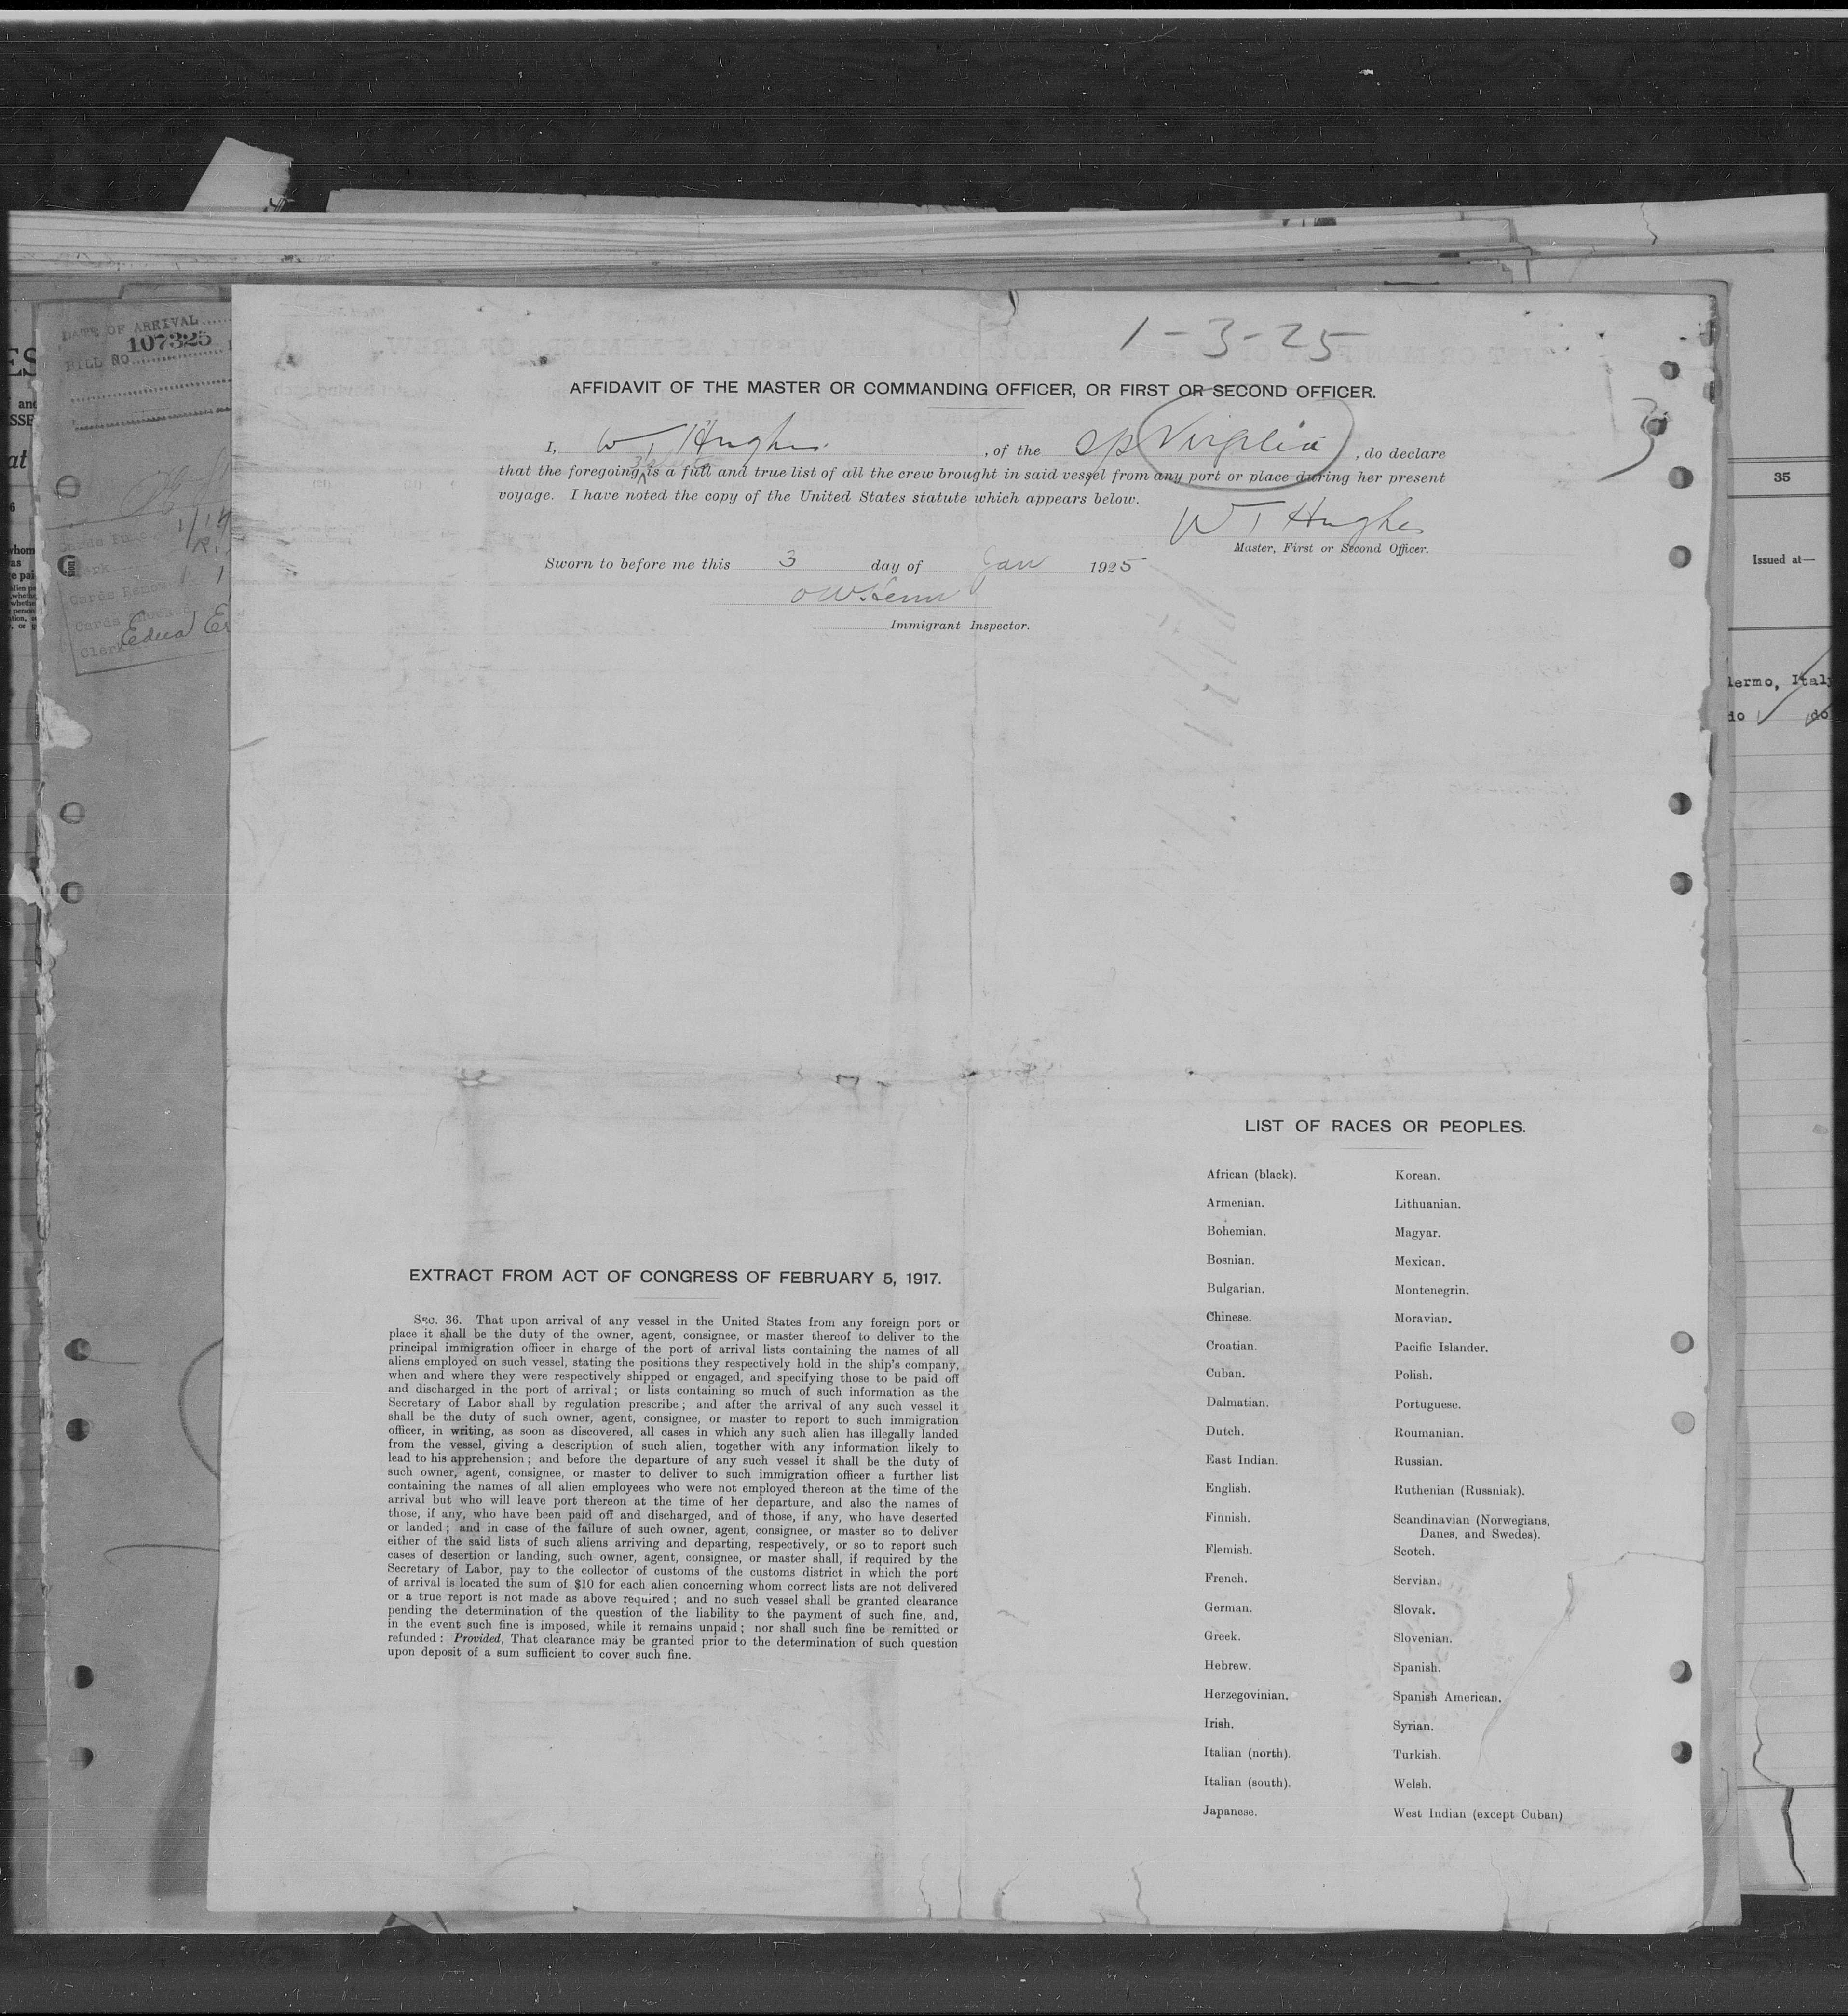 1-3-25
AFFIDAVIT OF THE MASTER OR COMMANDING OFFICER, OR FIRST OR SECOND OFFICER.
3
I, W T Hughes, of the Virgilia, do declare
that the foregoing is a full and true list of all the crew brought in said vessel from any port or place during her present
voyage. I have noted the copy of the United States statute which appears below.
W T Hughes
Master, First or Second Officer.
Sworn to before me this 3 day of Jan 1925
Immigrant Inspector.
EXTRACT FROM ACT OF CONGRESS OF FEBRUARY 5, 1917.
SEC. 36. That upon arrival of any vessel in the United States from any foreign port or
place it shall be the duty of the owner, agent, consignee, or master thereof to deliver to the
principal immigration officer in charge of the port of arrival lists containing the names of all
aliens employed on such vessel, stating the positions they respectively hold in the ship's company,
when and where they were respectively shipped or engaged, and specifying those to be paid off
and discharged in the port of arrival; or lists containing so much of such information as the
Secretary of Labor shall by regulation prescribe; and after the arrival of any such vessel it
shall be the duty of such owner, agent, consignee, or master to report to such immigration
officer, in writing, as soon as discovered, all cases in which any such alien has illegally landed
from the vessel, giving a description of such alien, together with any information likely to
lead to his apprehension; and before the departure of any such vessel it shall be the duty of
such owner, agent, consignee, or master to deliver to such immigration officer a further list
containing the names of all alien employees who were not employed thereon at the time of the
arrival but who will leave port thereon at the time of her departure, and also the names of
those, if any, who have been paid off and discharged, and of those, if any, who have deserted
or landed; and in case of the failure of such owner, agent, consignee, or master so to deliver
either of the said lists of such aliens arriving and departing, respectively, or so to report such
cases of desertion or landing, such owner, agent, consignee, or master shall, if required by the
Secretary of Labor, pay to the collector of customs of the customs district in which the port
of arrival is located the sum of $10 for each alien concerning whom correct lists are not delivered
or a true report is not made as above required; and no such vessel shall be granted clearance
pending the determination of the question of the liability to the payment of such fine, and,
in the event such fine is imposed, while it remains unpaid; nor shall such fine be remitted or
refunded: Provided, That clearance may be granted prior to the determination of such question
upon deposit of a sum sufficient to cover such fine.
LIST OF RACES OR PEOPLES.
African (black).
Armenian.
Bohemian.
Bosnian.
Bulgarian.
Chinese.
Croatian.
Cuban.
Dalmatian.
Dutch.
East Indian.
English.
Finnish.
Flemish.
French.
German.
Greek.
Hebrew.
Herzegovinian.
Irish.
Italian (north).
Italian (south).
Japanese.
Korean.
Lithuanian.
Magyar.
Mexican.
Montenegrin.
Moravian.
Pacific Islander.
Polish.
Portuguese.
Roumanian.
Russian.
Ruthenian (Russniak).
Scandinavian (Norwegians,
Danes, and Swedes).
Scotch.
Servian.
Slovak.
Slovenian.
Spanish.
Spanish American.
Syrian.
Turkish.
Welsh.
West Indian (except Cuban)
DATE OF ARRIVAL
BILL NO 107325
Clerk
35
Issued at—
lermo, Italy
do do